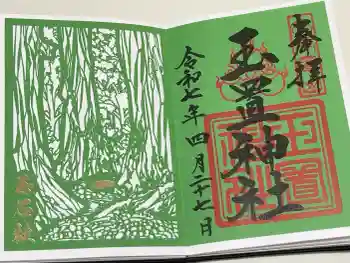 奉拝
玉置神社
令和七年四月二十七日
玉石社